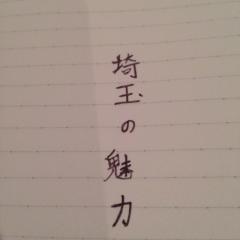 埼玉の魅力